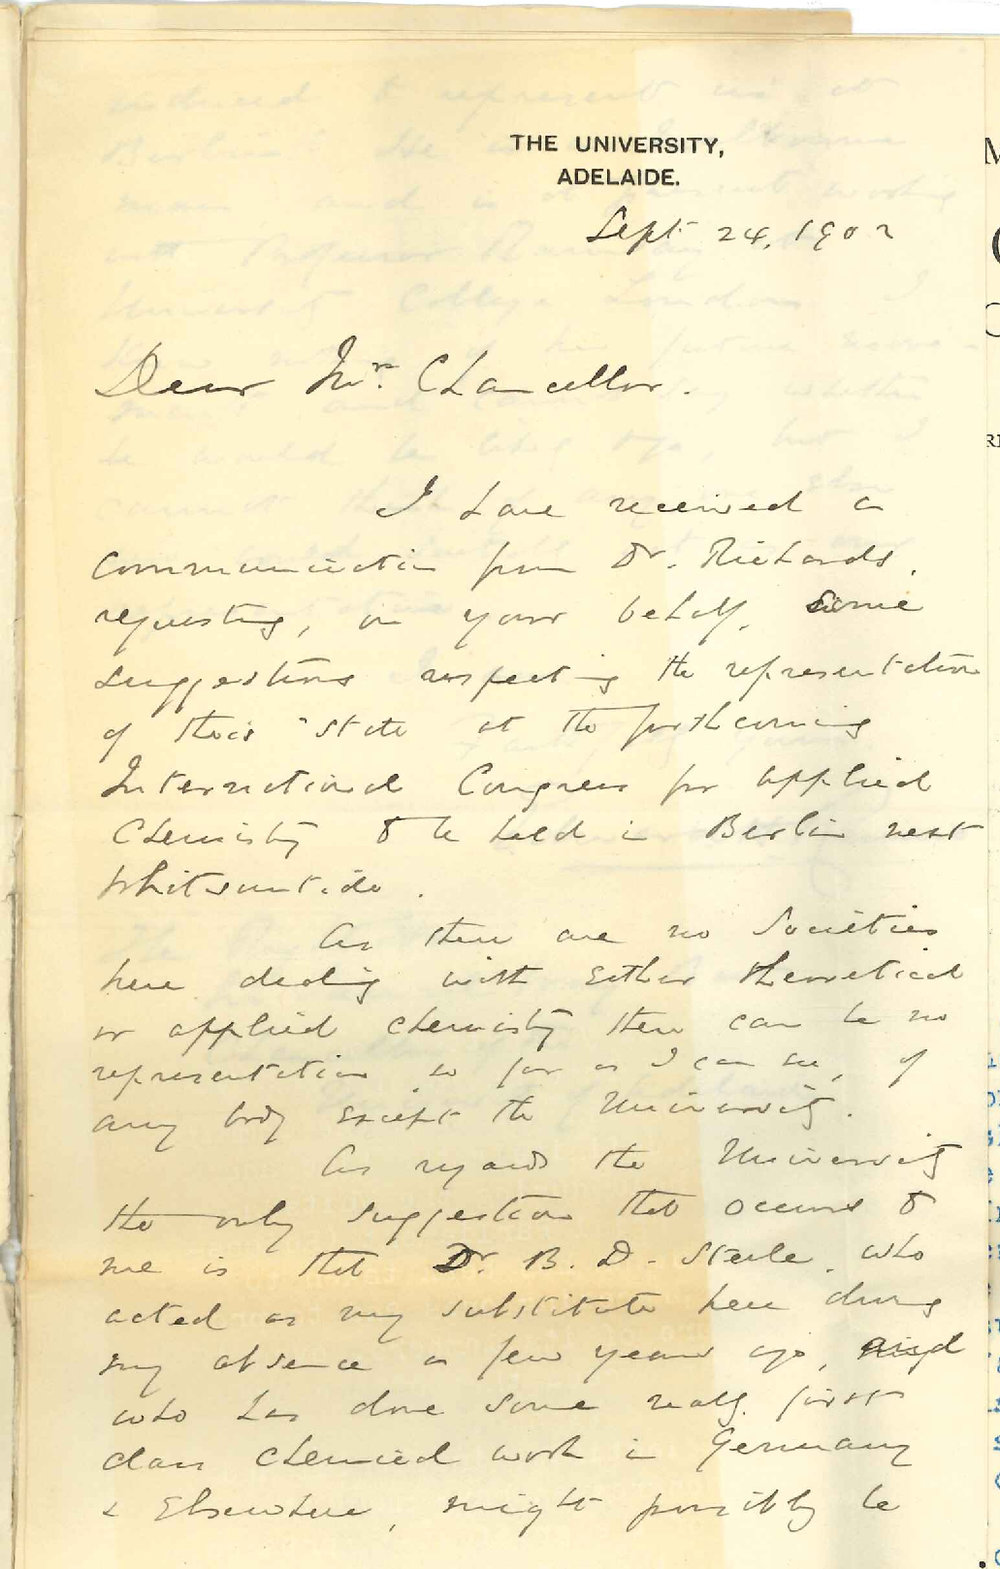 THE UNIVERSITY,
ADELAIDE.
Sept 24, 1902
Dear Mr. Chancellor.
I have received a
communication from Dr. Richards,
requesting, on your behalf, some
suggestions respecting the representation
of this state at the forthcoming
International Congress for applied
Chemistry to be held in Berlin next
Whitsuntide.
As there are no Societies
here dealing with either theoretical
or applied chemistry there can be no
representation, so far as I can see, of
any body except the University.
As regards the University
the only suggestion that occurs to
me is that Dr. B. D. Steele, who
acted as my substitute here during
my absence a few years ago, and
who has done some really first
class chemical work in Germany
& Elsewhere, might possibly be